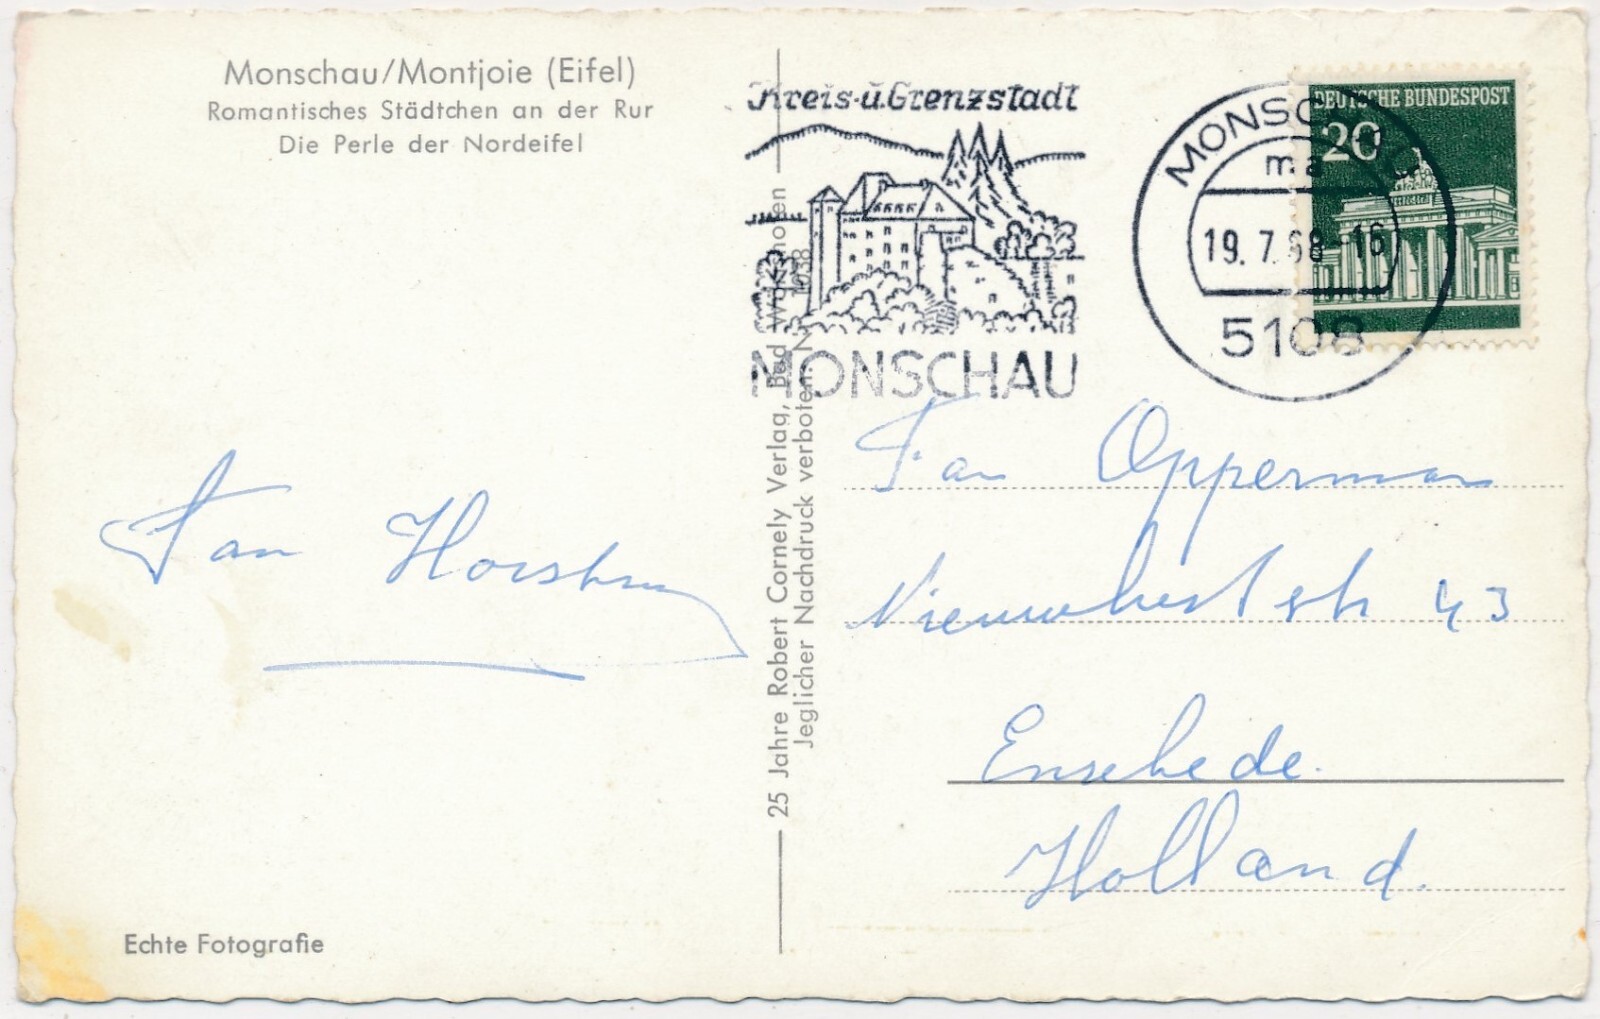 Monschau/Montjoie (Eifel)
Romantisches Städtchen an der Rur
Die Perle der Nordeifel
Kreis- u. Grenzstadt
MONSCHAU
MONSCHAU
ma
19. 7. 68-16
5108
DEUTSCHE BUNDESPOST
20
25 Jahre Robert Cornely Verlag, Bad
Jeglicher Nachdruck verboten
Fam Opperman
43
Enschede.
Holland.
Fam
Echte Fotografie